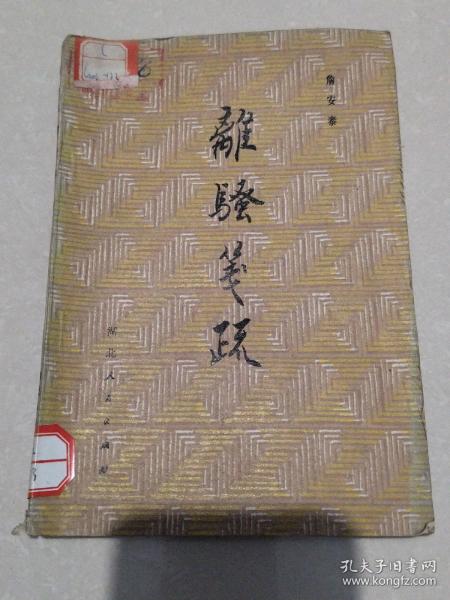 詹安泰
離騷箋疏
湖北人民出版社
孔夫子旧书网
www.kongfz.com